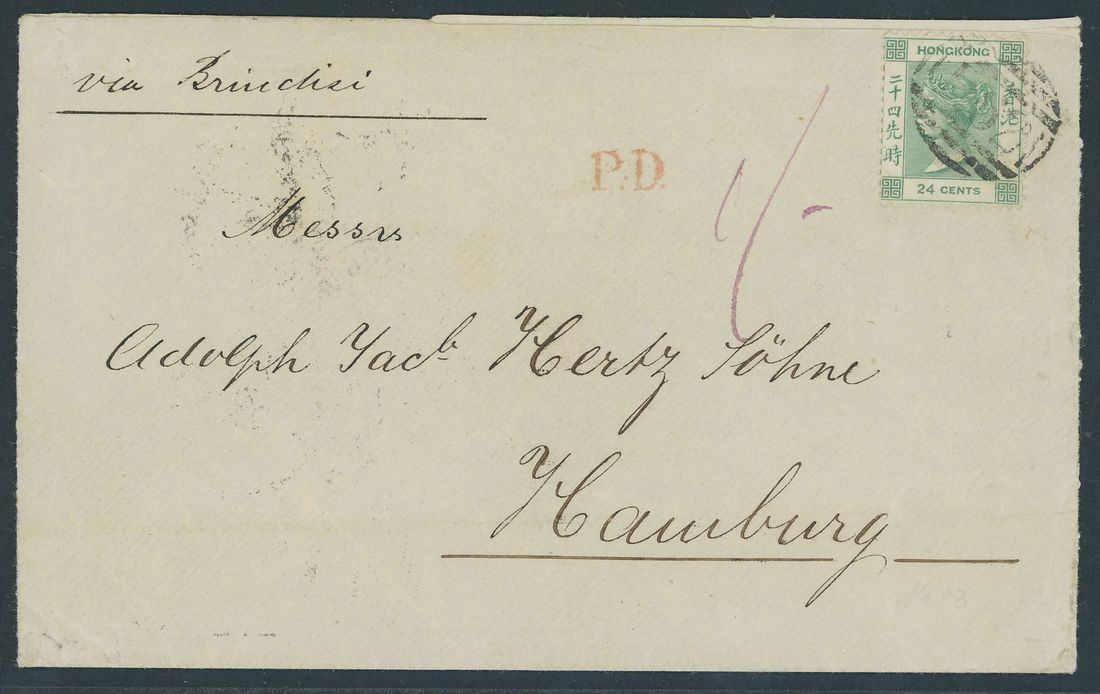 via Brindisi
P.D.
HONGKONG
二十四先時
香港
24 CENTS
1/-
Messrs
Adolph Jacb Hertz Söhne
Hamburg